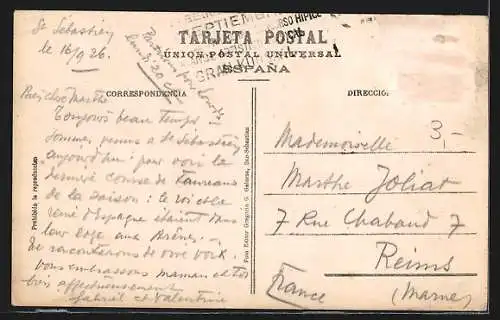 St Sébastien
le 16/9 26.
SEPTIEMBRE
CONCURSO HIPICO
GRAN
Partirons pour Lourdes
lundi 20 ct
TARJETA POSTAL
UNION POSTAL UNIVERSAL
ESPAÑA
CORRESPONDENCIA
DIRECCIÓ:
Bien chère Marthe
Toujours beau temps
sommes venus à St Sébastien
aujourd'hui pour voir la
dernière course de taureaux
de la saison : le roi et la
reine d'Espagne étaient dans
leur loge aux arènes.
Te raconterons de vive voix.
vous embrassons maman et toi
bien affectueusement
Gabriel et Valentine
Prohibida la reproducción
Foto Editor Gregorio G. Galarza, San-Sebastián
Mademoiselle 3,-
Marthe Joliat
7 Rue Chabaud 7
Reims
France (Marne)